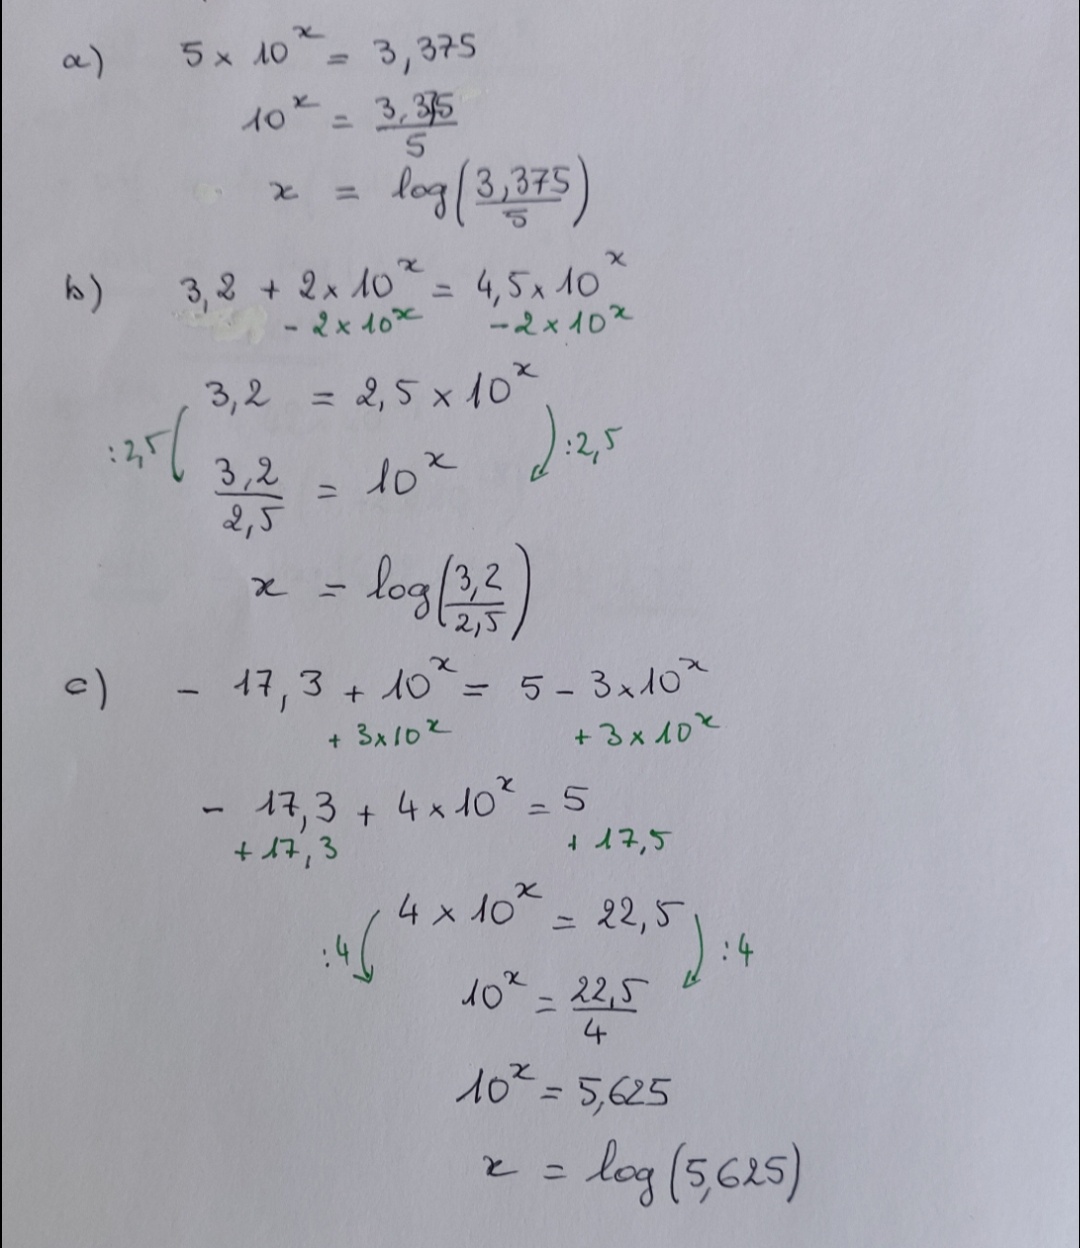 a) 5 × 10^x = 3,375
10^x = 3,375/5
x = log(3,375/5)
b) 3,2 + 2 × 10^x = 4,5 × 10^x
- 2 × 10^x - 2 × 10^x
3,2 = 2,5 × 10^x
:2,5 :2,5
3,2/2,5 = 10^x
x = log(3,2/2,5)
c) - 17,3 + 10^x = 5 - 3 × 10^x
+ 3 × 10^x + 3 × 10^x
- 17,3 + 4 × 10^x = 5
+ 17,3 + 17,5
4 × 10^x = 22,5
:4 :4
10^x = 22,5/4
10^x = 5,625
x = log(5,625)